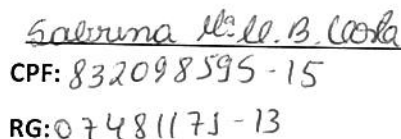 Sabrina Mª M. B. Costa
CPF: 832098595-15
RG: 07481171-13